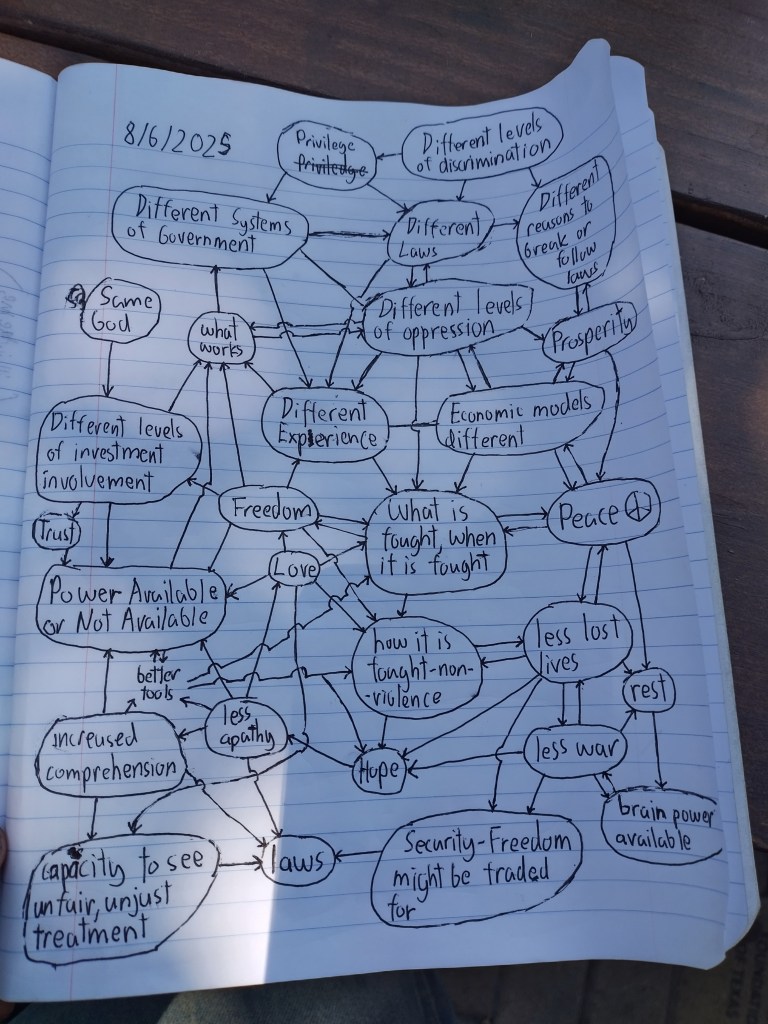 8/6/2025
Privilege
Priviledge
Different levels
of discrimination
Different Systems
of Government
Different
Laws
Different
reasons to
break or
follow
laws
Same
God
what
works
Different levels
of oppression
Prosperity
Different levels
of investment
involvement
Different
Experience
Economic models
different
Trust
Freedom
What is
fought, when
it is fought
Peace
Power Available
or Not Available
Love
better
tools
how it is
fought-non-
-violence
less lost
lives
rest
increused
comprehension
less
apathy
Hope
less war
brain power
available
capacity to see
unfair, unjust
treatment
laws
Security-Freedom
might be traded
for